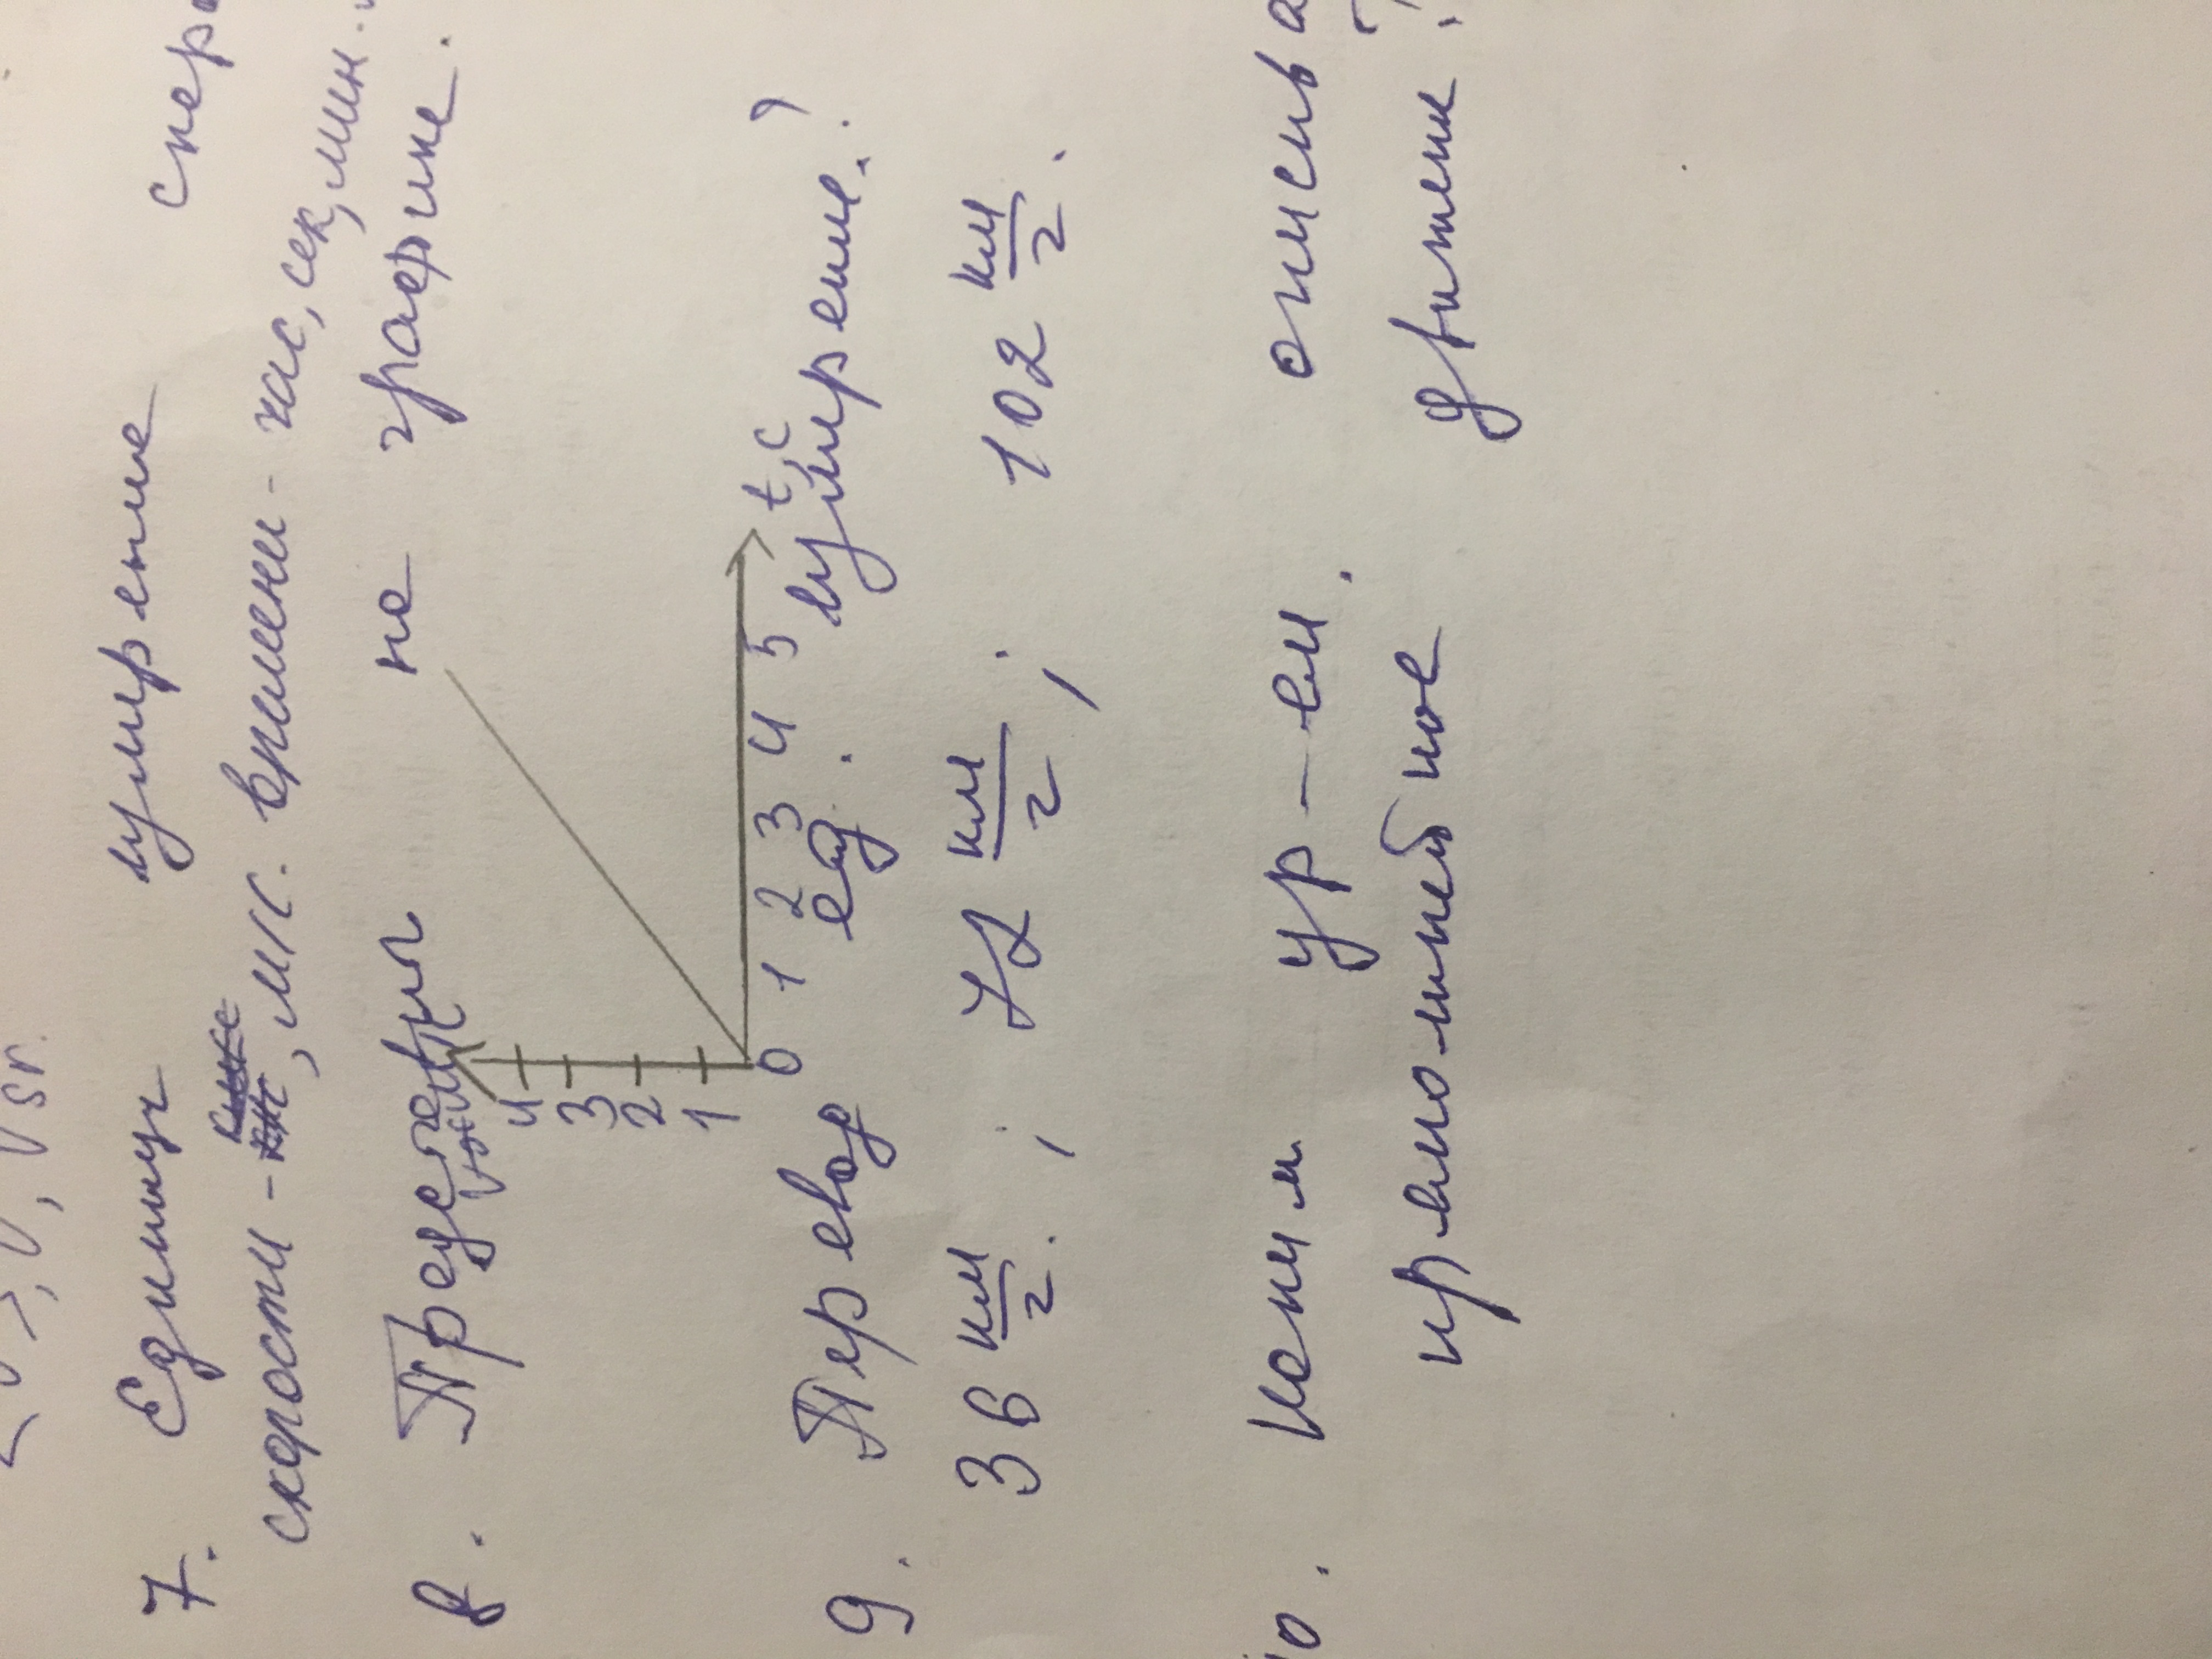 V sr.
7. Единицы измерение скор
скорости - м/с. времени - час, сек, мин.
8. Представить на графике.
4
3
2
1
0 1 2 3 4 5 t, c
9. Перевод ед. измерение?
36 км/г. ; 72 км/г ; 102 км/г.
10. Каким ур-ем. описыва
прямолинейное движение?